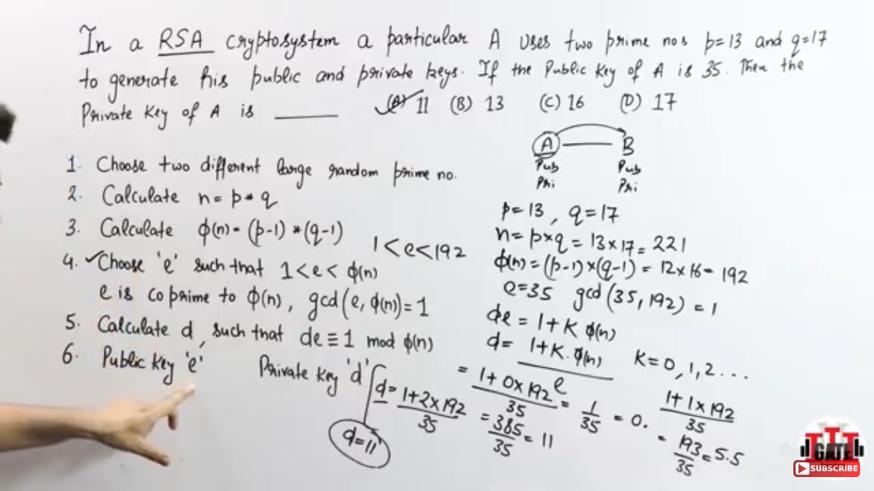 In a RSA cryptosystem a particular A uses two prime nos p=13 and q=17
to generate his public and private keys. If the Public Key of A is 35. Then the
Private Key of A is ______ (A) 11 (B) 13 (C) 16 (D) 17
A B
Pub Pub
Pri Pri
1. Choose two different large random prime no.
2. Calculate n = p * q
3. Calculate ϕ(n) = (p-1) * (q-1)
1 < e < 192
4. ✓Choose 'e' such that 1 < e < ϕ(n)
e is coprime to ϕ(n), gcd(e, ϕ(n)) = 1
5. Calculate d, such that de ≡ 1 mod ϕ(n)
6. Public Key 'e' Private Key 'd'
p=13, q=17
n = p×q = 13×17 = 221
ϕ(n) = (p-1)×(q-1) = 12×16 = 192
e=35 gcd(35,192) = 1
de = 1+K ϕ(n)
d = 1+K.ϕ(n) / e K=0,1,2...
= 1+0×192 / 35 = 1/35 = 0.
1+1×192 / 35
= 193/35 = 5.5
d = 1+2×192 / 35 = 385/35 = 11
d=11
GATE
SUBSCRIBE